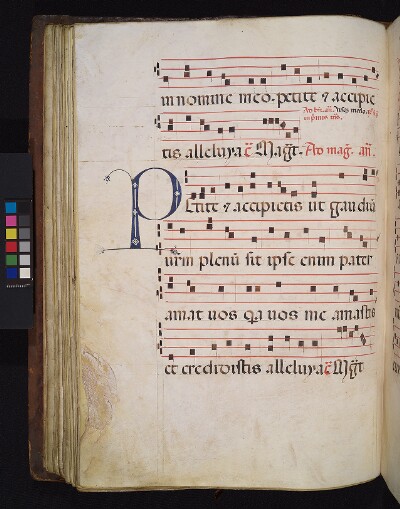 in nomine meo. petite ⁊ accipie
tis alleluya Mag̃t. Ad mag̃. añ.
Petite ⁊ accipietis ut gaudiũ
urm plenũ sit ipse enim pater
amat uos q̃a uos me amastis
et credidistis alleluya Mg̃t